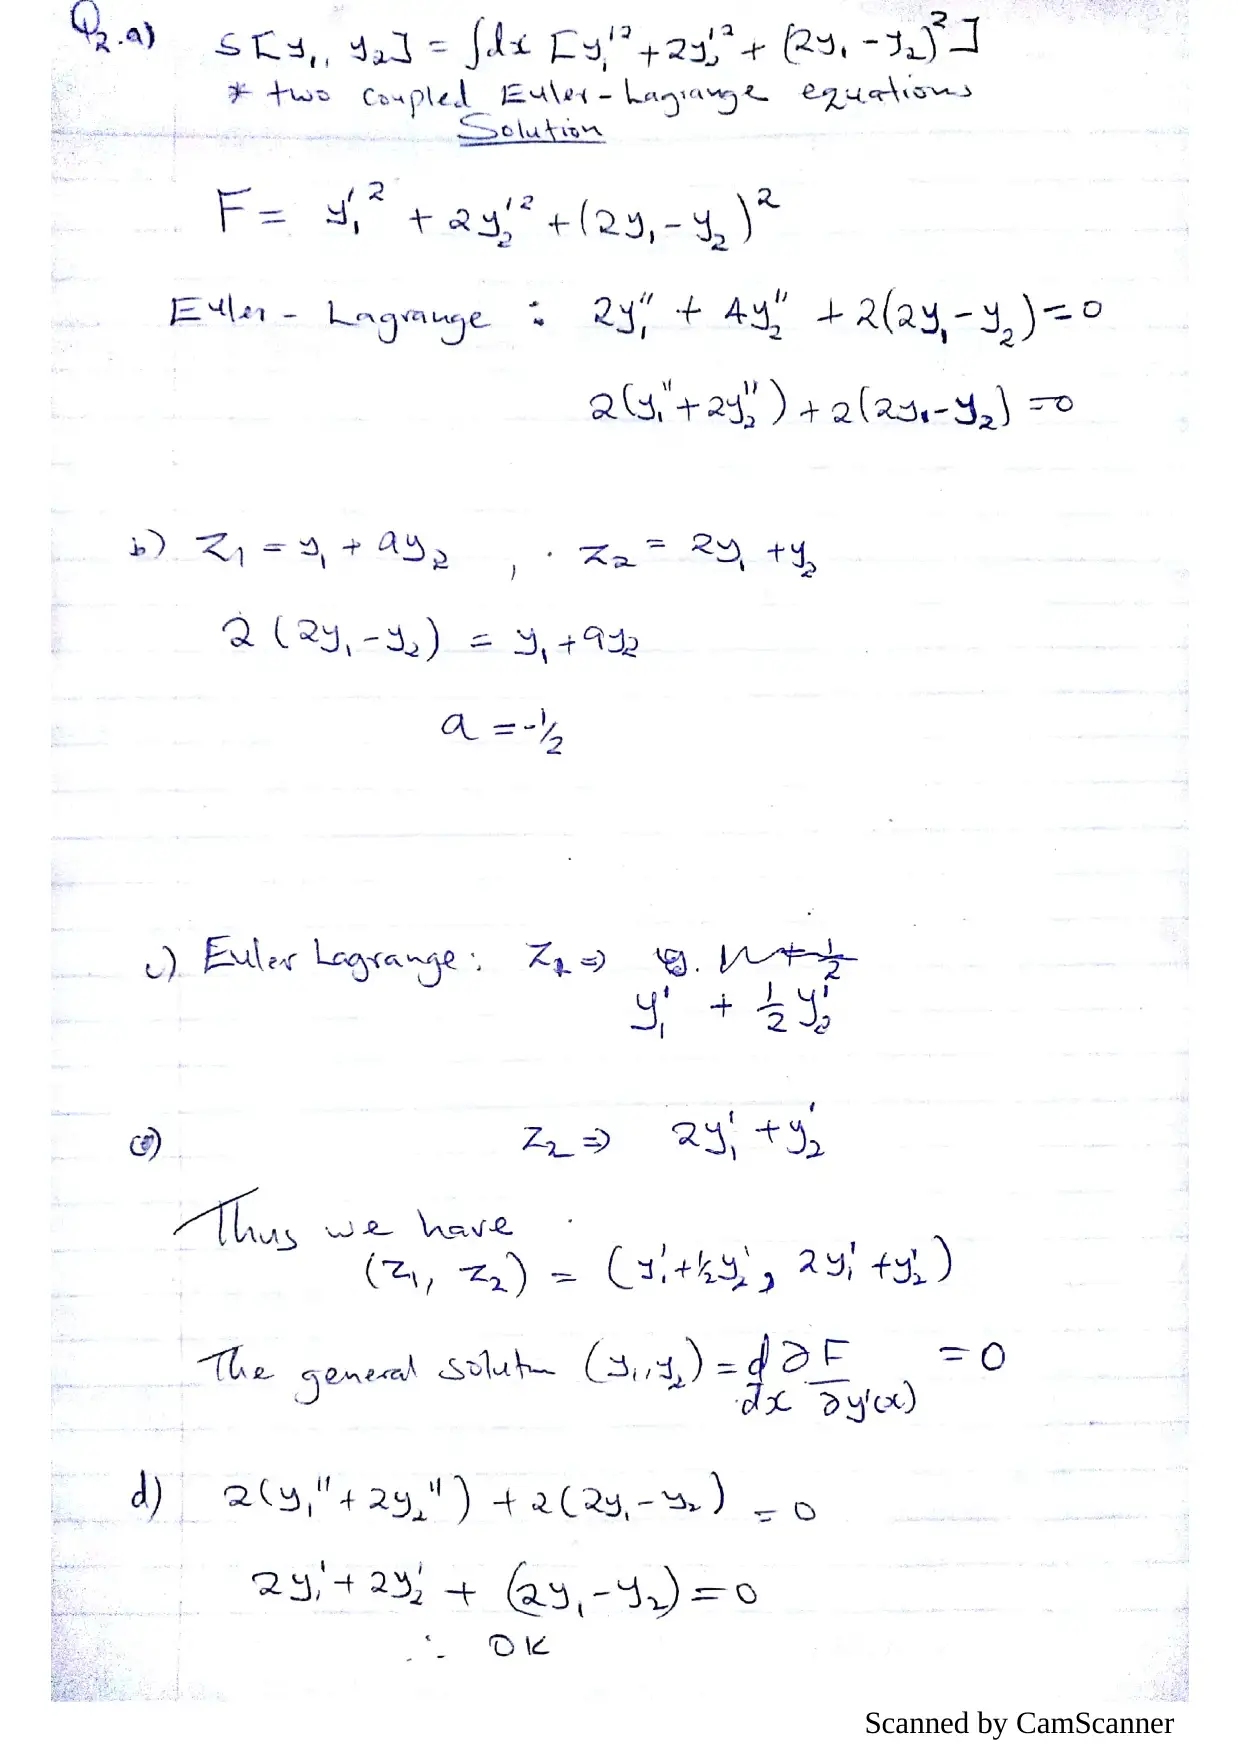 Q2.a) S[y₁, y₂] = ∫dx [y₁'² + 2y₂'² + (2y₁ - y₂)²]
* two coupled Euler-Lagrange equations
Solution
F = y₁'² + 2y₂'² + (2y₁ - y₂)²
Euler - Lagrange : 2y₁'' + 4y₂'' + 2(2y₁ - y₂) = 0
2(y₁'' + 2y₂'') + 2(2y₁ - y₂) = 0
b) z₁ = y₁ + ay₂ , z₂ = 2y₁ + y₂
2(2y₁ - y₂) = y₁ + ay₂
a = -1/2
c) Euler Lagrange: z₁ ⇒
y₁' + 1/2 y₂'
z₂ ⇒ 2y₁' + y₂'
Thus we have
(z₁, z₂) = (y₁' + 1/2 y₂', 2y₁' + y₂')
The general solutn (y₁, y₂) = d/dx ∂F/∂y'(x) = 0
d) 2(y₁'' + 2y₂'') + 2(2y₁ - y₂) = 0
2y₁' + 2y₂' + (2y₁ - y₂) = 0
∴ OK
Scanned by CamScanner